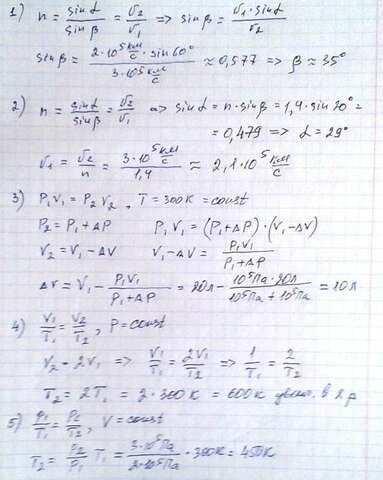 1) n = sin α / sin β = v2 / v1 => sin β = v1 · sin α / v2
sin β = 2·10⁵ км/с · sin 60° / 3·10⁵ км/с ≈ 0,577 => β ≈ 35°
2) n = sin α / sin β = v2 / v1 => sin α = n · sin β = 1,4 · sin 20° =
= 0,479 => α = 29°
v1 = v2 / n = 3·10⁵ км/с / 1,4 ≈ 2,1·10⁵ км/с
3) P1V1 = P2V2, T = 300K = const
P2 = P1 + ΔP P1V1 = (P1+ΔP)·(V1-ΔV)
V2 = V1 - ΔV V1-ΔV = P1V1 / P1+ΔP
ΔV = V1 - P1V1 / P1+ΔP = 20л - 10⁵Па·20л / 10⁵Па+10⁵Па = 10л
4) V1/T1 = V2/T2, P = const
V2 = 2V1 => V1/T1 = 2V1/T2 => 1/T1 = 2/T2
T2 = 2T1 = 2·300K = 600K увел. в 2 р
5) P1/T1 = P2/T2, V = const
T2 = P2/P1 T1 = 3·10⁵Па / 2·10⁵Па · 300K = 450K